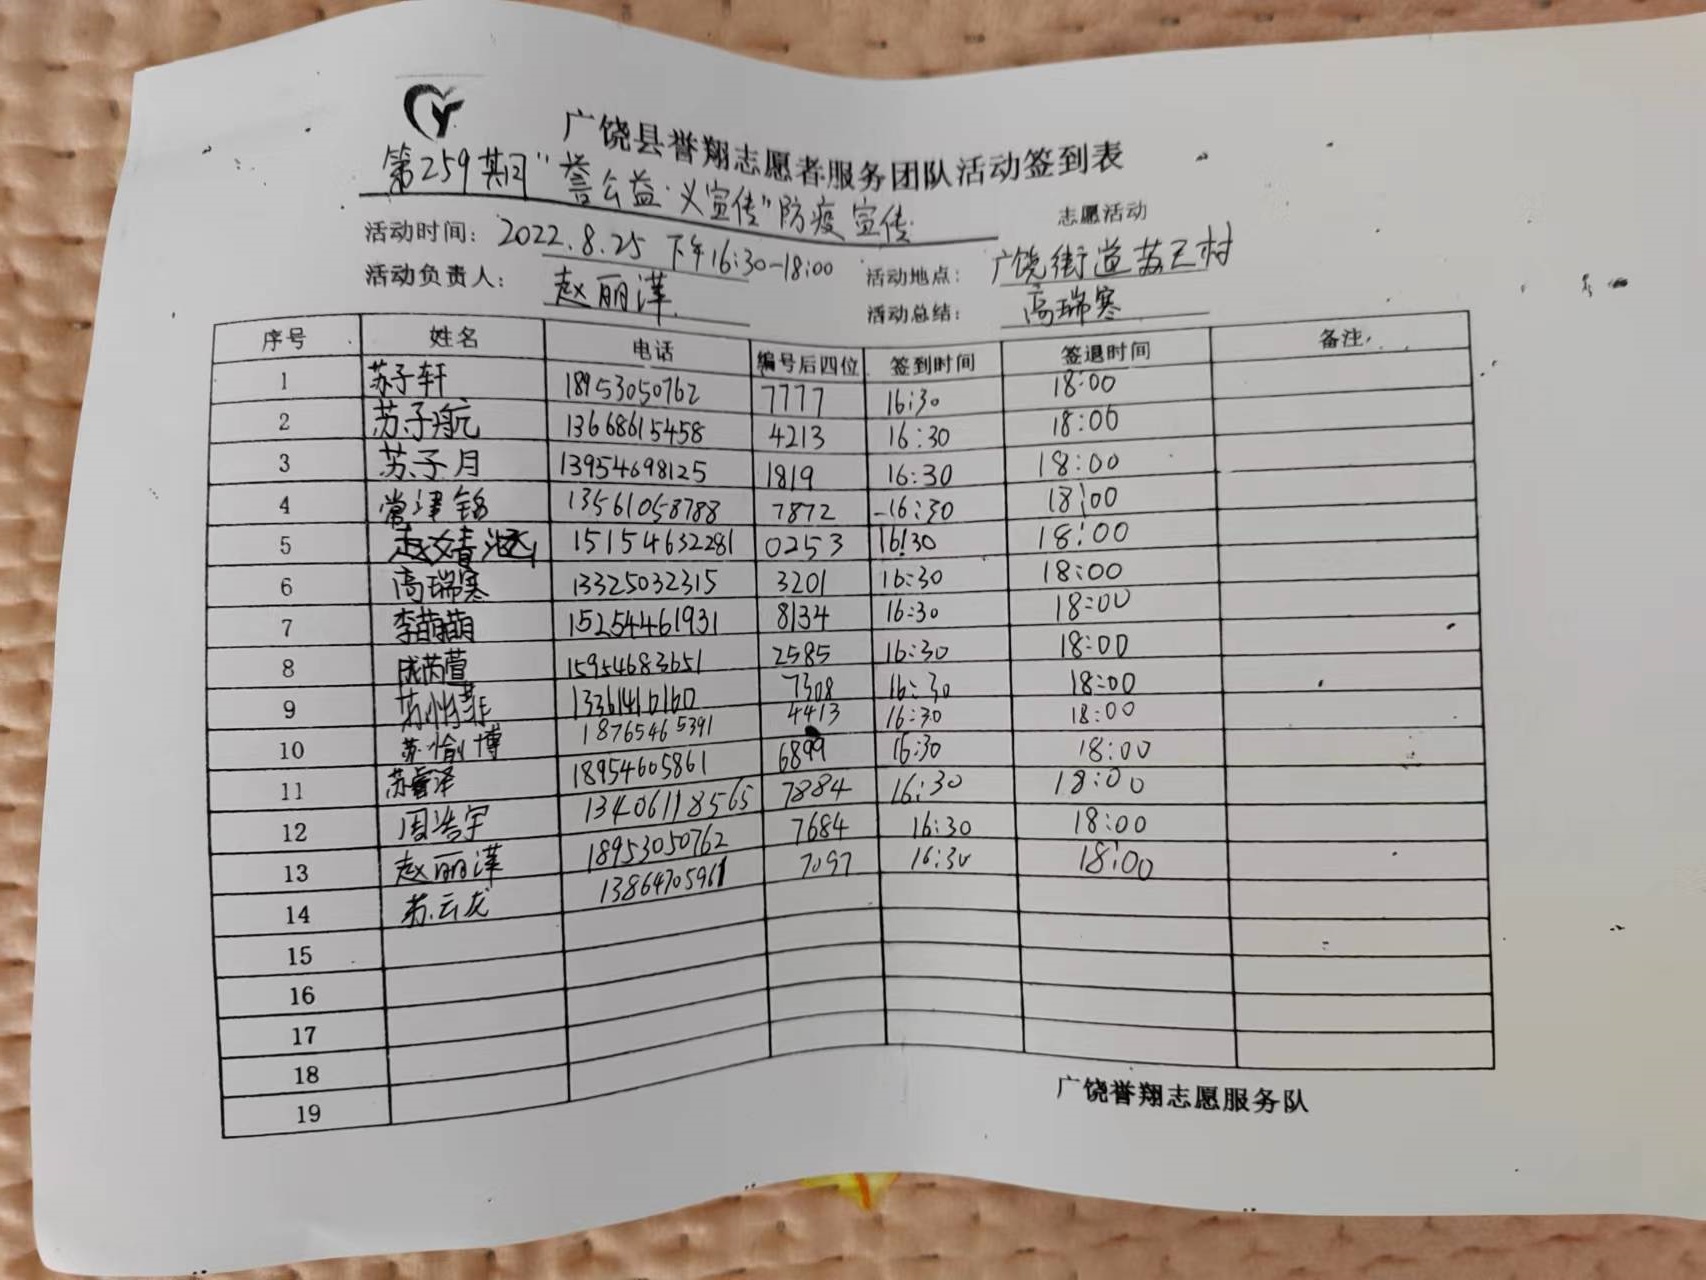 广饶县誉翔志愿者服务团队活动签到表
第259期"誉公益·义宣传"防疫宣传 志愿活动
活动时间：2022.8.25 下午16:30-18:00 活动地点：广饶街道苏王村
活动负责人：赵丽萍 活动总结：高瑞寒
序号 姓名 电话 编号后四位 签到时间 签退时间 备注
1 苏子轩 18953050762 7777 16:30 18:00
2 苏子航 13668615458 4213 16:30 18:00
3 苏子月 13954698125 1819 16:30 18:00
4 常津铭 13561058788 7872 16:30 18:00
5 15154632281 0253 16:30 18:00
6 高瑞寒 13325032315 3201 16:30 18:00
7 李萌萌 15254461931 8134 16:30 18:00
8 成芮萱 15954683651 2585 16:30 18:00
9 13361410160 7308 16:30 18:00
10 苏愉博 18765465391 4413 16:30 18:00
11 苏睿泽 18954605861 6899 16:30 18:00
12 周浩宇 13406118565 7884 16:30 18:00
13 赵丽萍 18953050762 7684 16:30 18:00
14 苏云龙 13864705961 7097 16:30 18:00
15
16
17
18
19
广饶誉翔志愿服务队